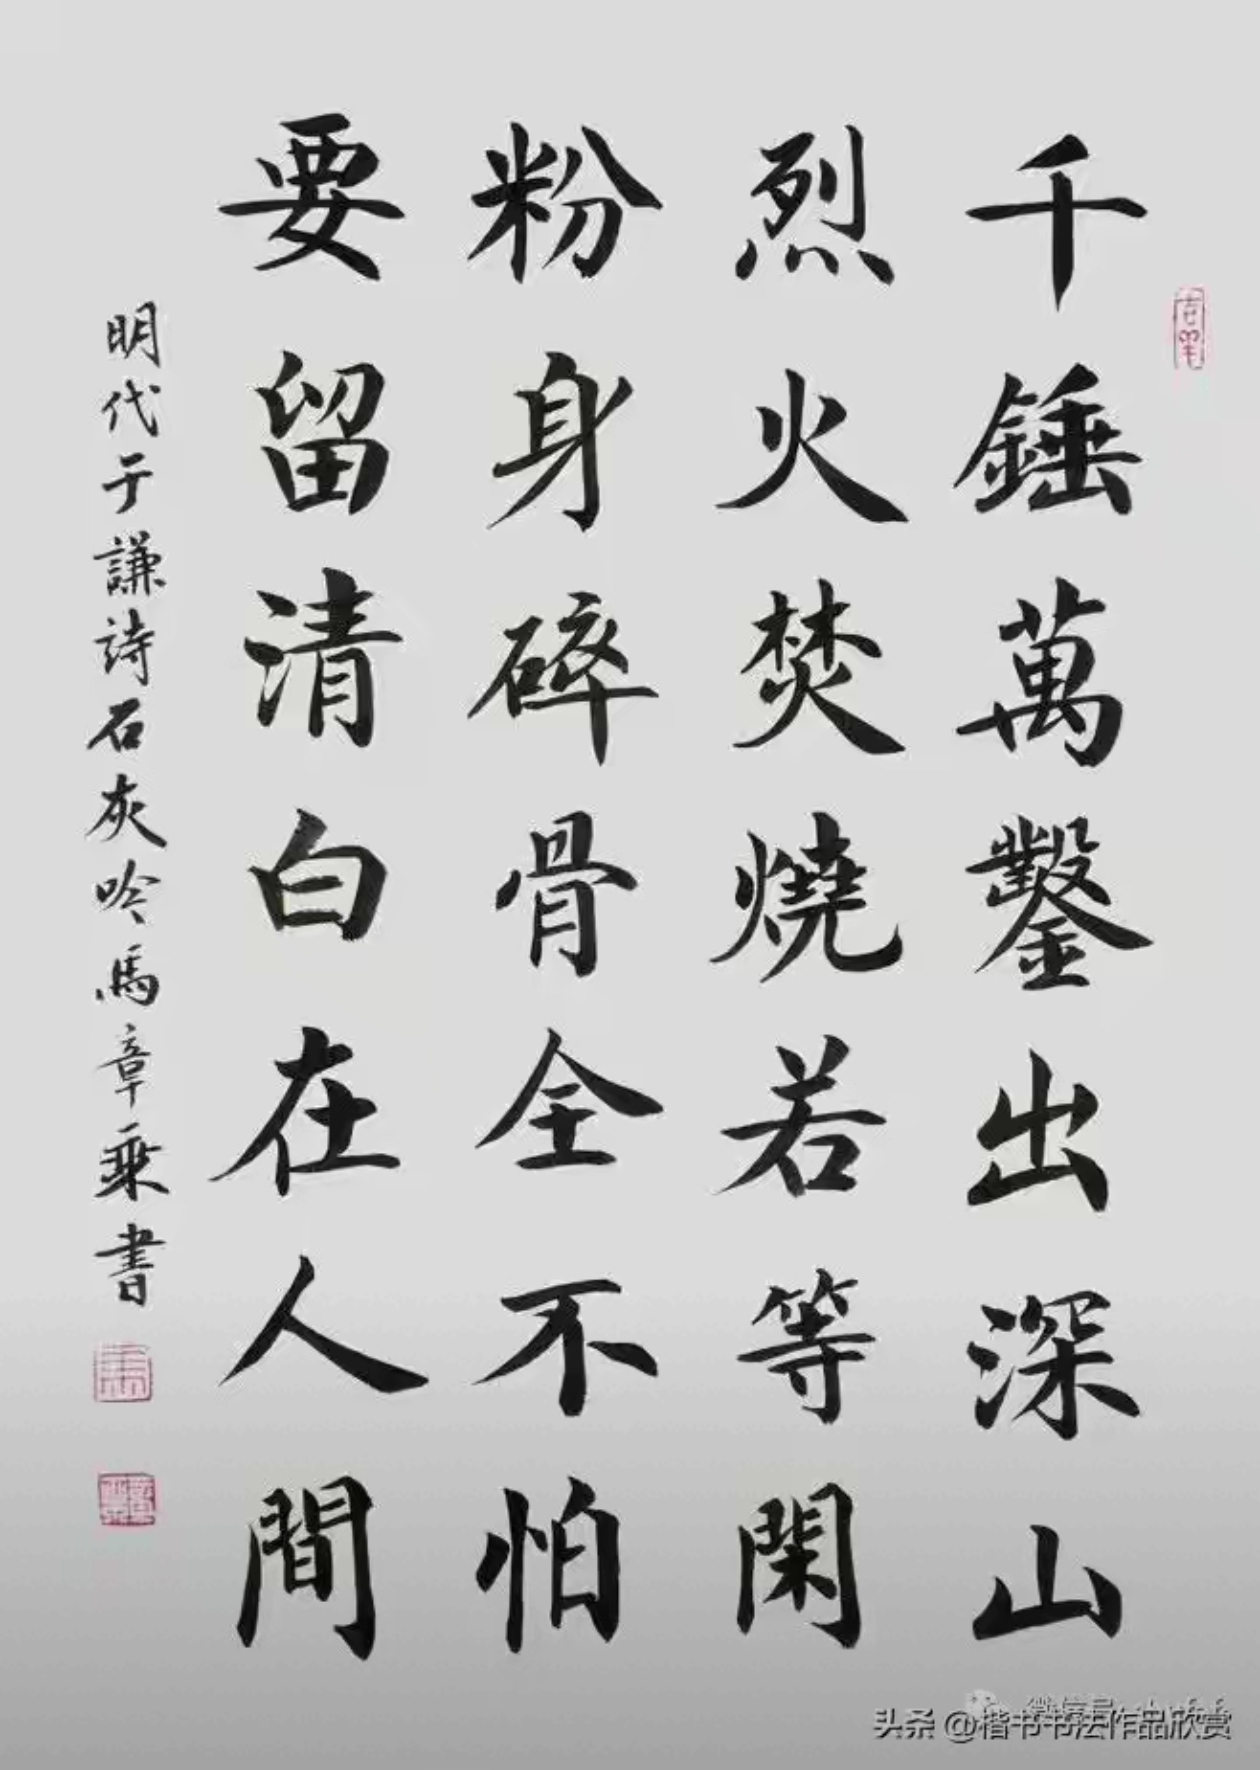 千錘萬鑿出深山
烈火焚燒若等閑
粉身碎骨全不怕
要留清白在人間
明代于謙詩石灰吟馬章乘書
头条 @楷书书法作品欣赏